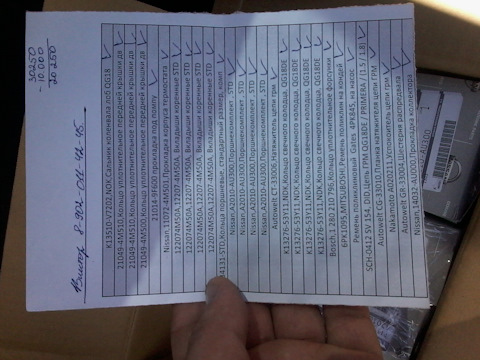 30250
-10.000
20250
Виктор 8-902-011-42-45
K13510-V7202,NOK,Сальник коленвала лоб QG18
21049-4M510,Кольцо уплотнительное передней крышки дв
21049-4M510,Кольцо уплотнительное передней крышки дв
21049-4M510,Кольцо уплотнительное передней крышки дв
21014-4F600 прокладка помпы
Nissan,11062-4M501,Прокладка корпуса термостата
122074M50A,12207-4M50A, Вкладыши коренные STD
122074M50A,12207-4M50A, Вкладыши коренные STD
122074M50A,12207-4M50A, Вкладыши коренные STD
122074M50A,12207-4M50A, Вкладыши коренные STD
34131-STD,Кольца поршневые, стандартный размер, комп
Nissan,A2010-AU300,Поршнекомплект STD
Nissan,A2010-AU300,Поршнекомплект STD
Nissan,A2010-AU300,Поршнекомплект STD
Nissan,A2010-AU300,Поршнекомплект STD
Autowelt CT-33006,Натяжитель цепи грм
K13276-53Y11,NDK,Кольцо свечного колодца, QG18DE
K13276-53Y11,NDK,Кольцо свечного колодца, QG18DE
K13276-53Y11,NDK,Кольцо свечного колодца, QG18DE
K13276-53Y11,NDK,Кольцо свечного колодца, QG18DE
Bosch,1 280 210 796,Кольцо уплотнительное форсунки
6PK1095,MITSUBOSHI,Ремень поликлин на кондей
Ремень поликлиновый Gates 4PK845, на гидрач
SCH-0412 SV 154, DID,Цепь ГРМ QG18DE / PRIMERA / (1.5 / 1.8)
Nakamoto,A0202111,Успокоитель цепи грм
Autowelt GR-33004,Шестерня распредвала
Nissan,14032-AU000,Прокладка коллектора